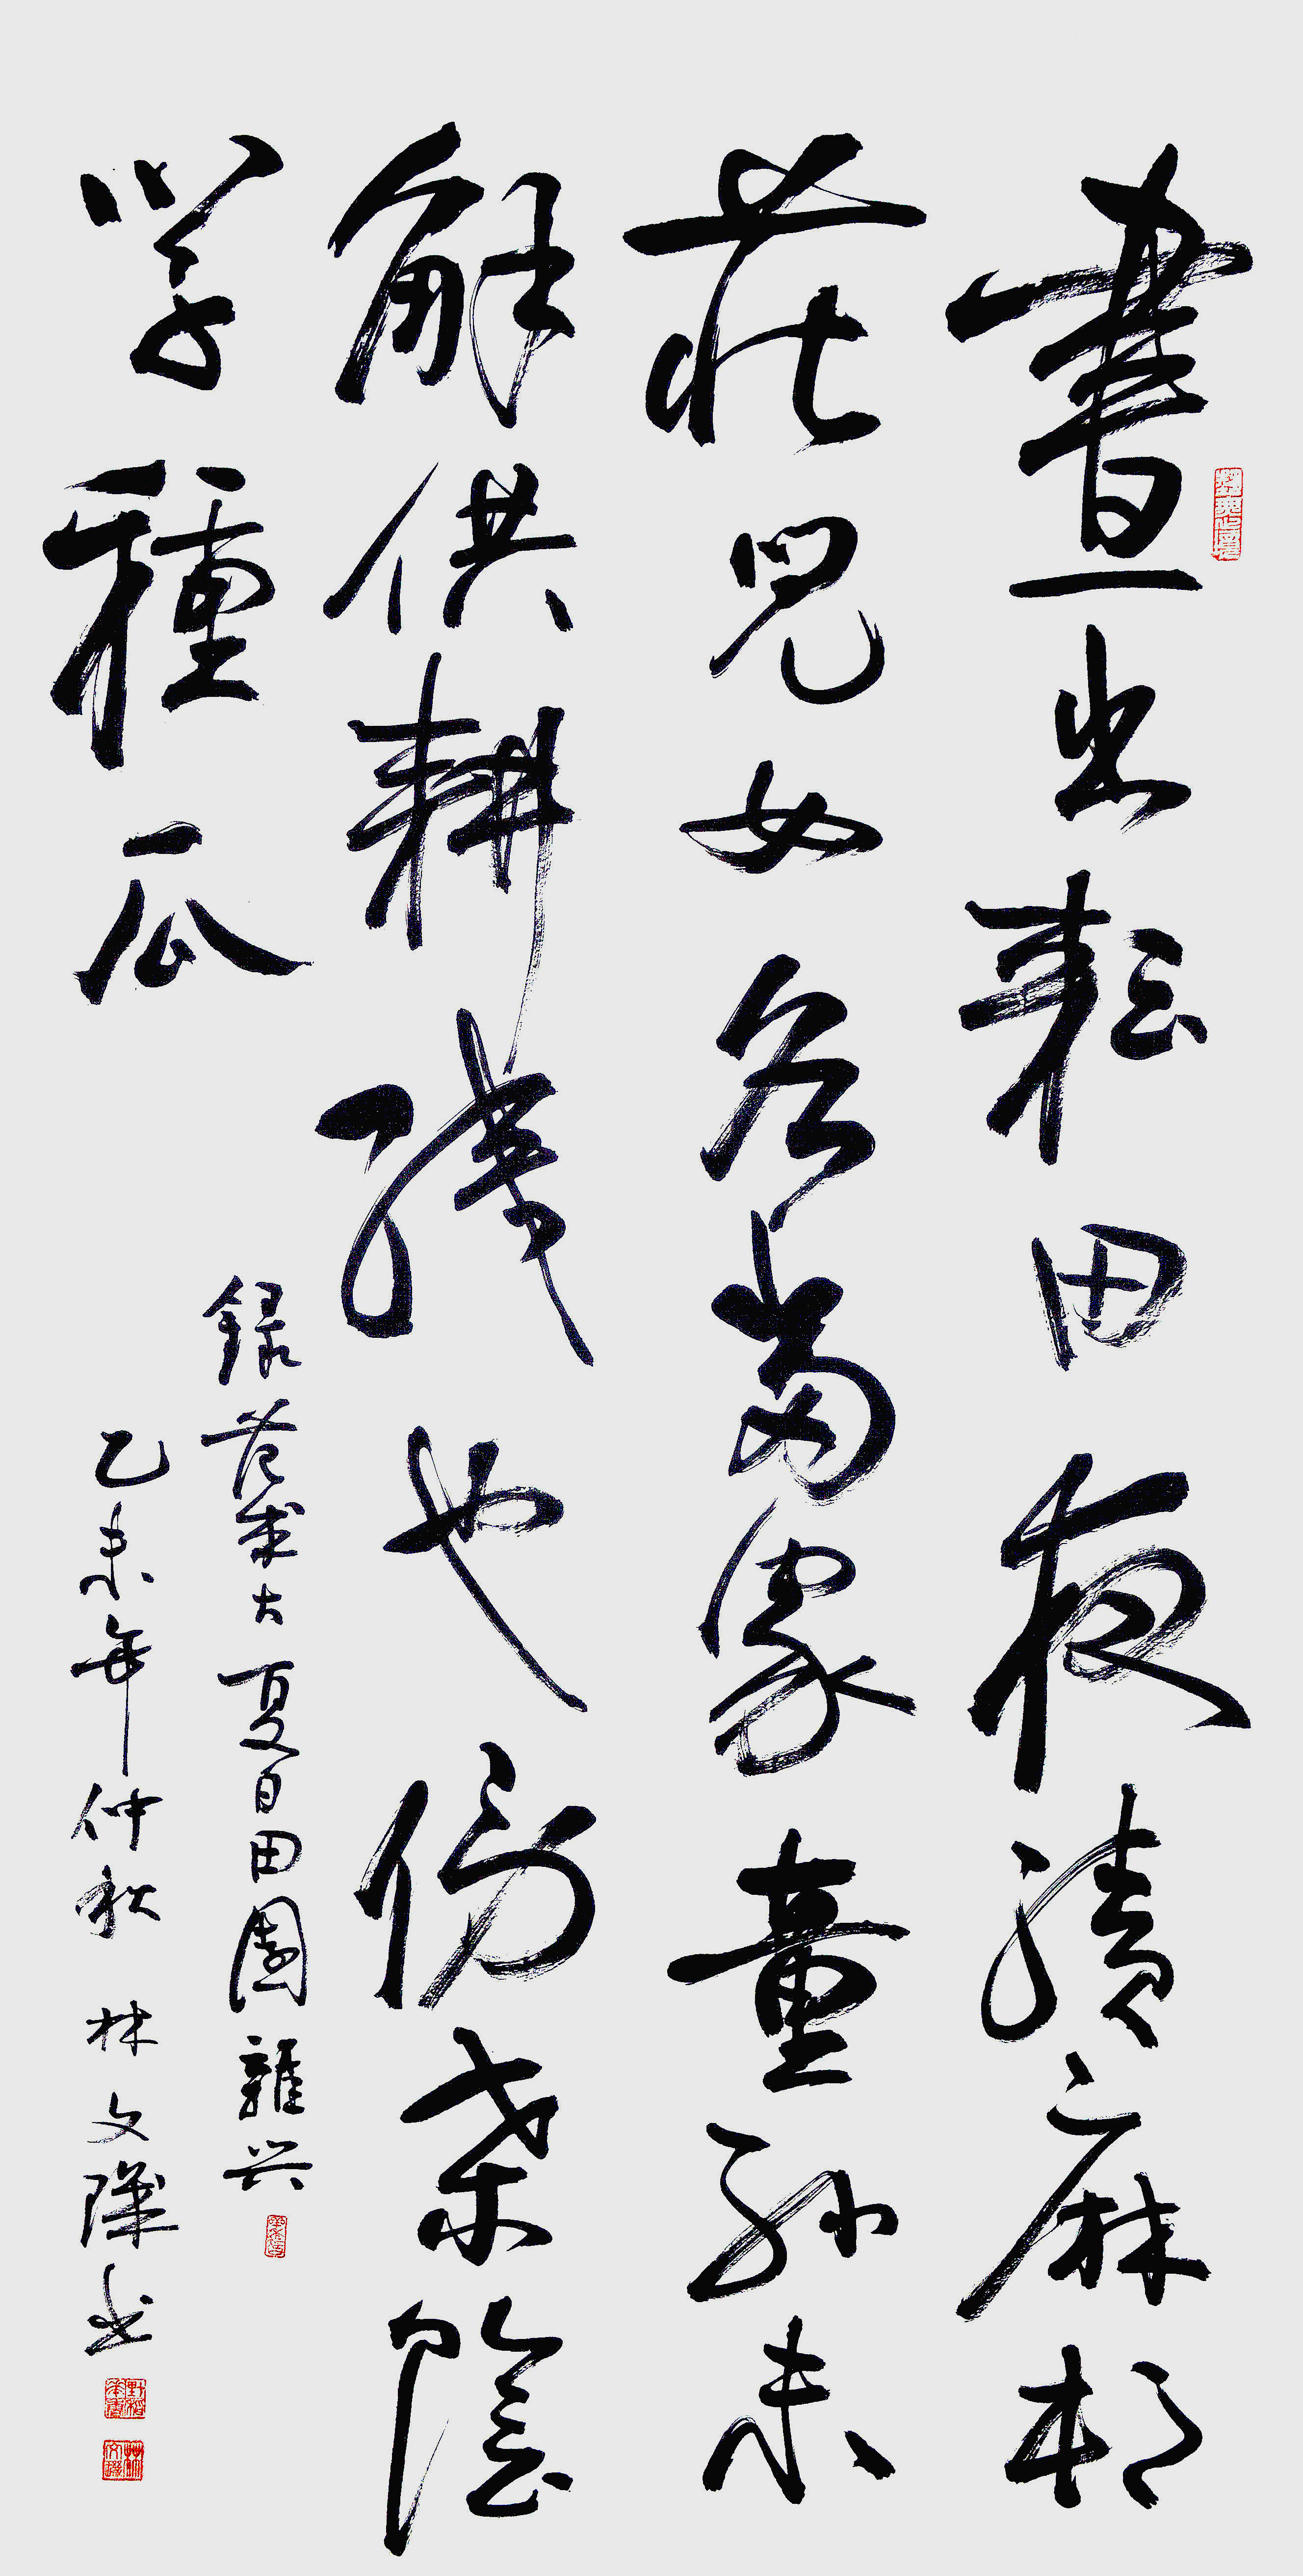 晝出耘田夜績麻村
莊兒女各當家童孫未
解供耕織也傍桑陰
學種瓜
錄范成大夏日田園雜兴
乙未年仲秋 林文書